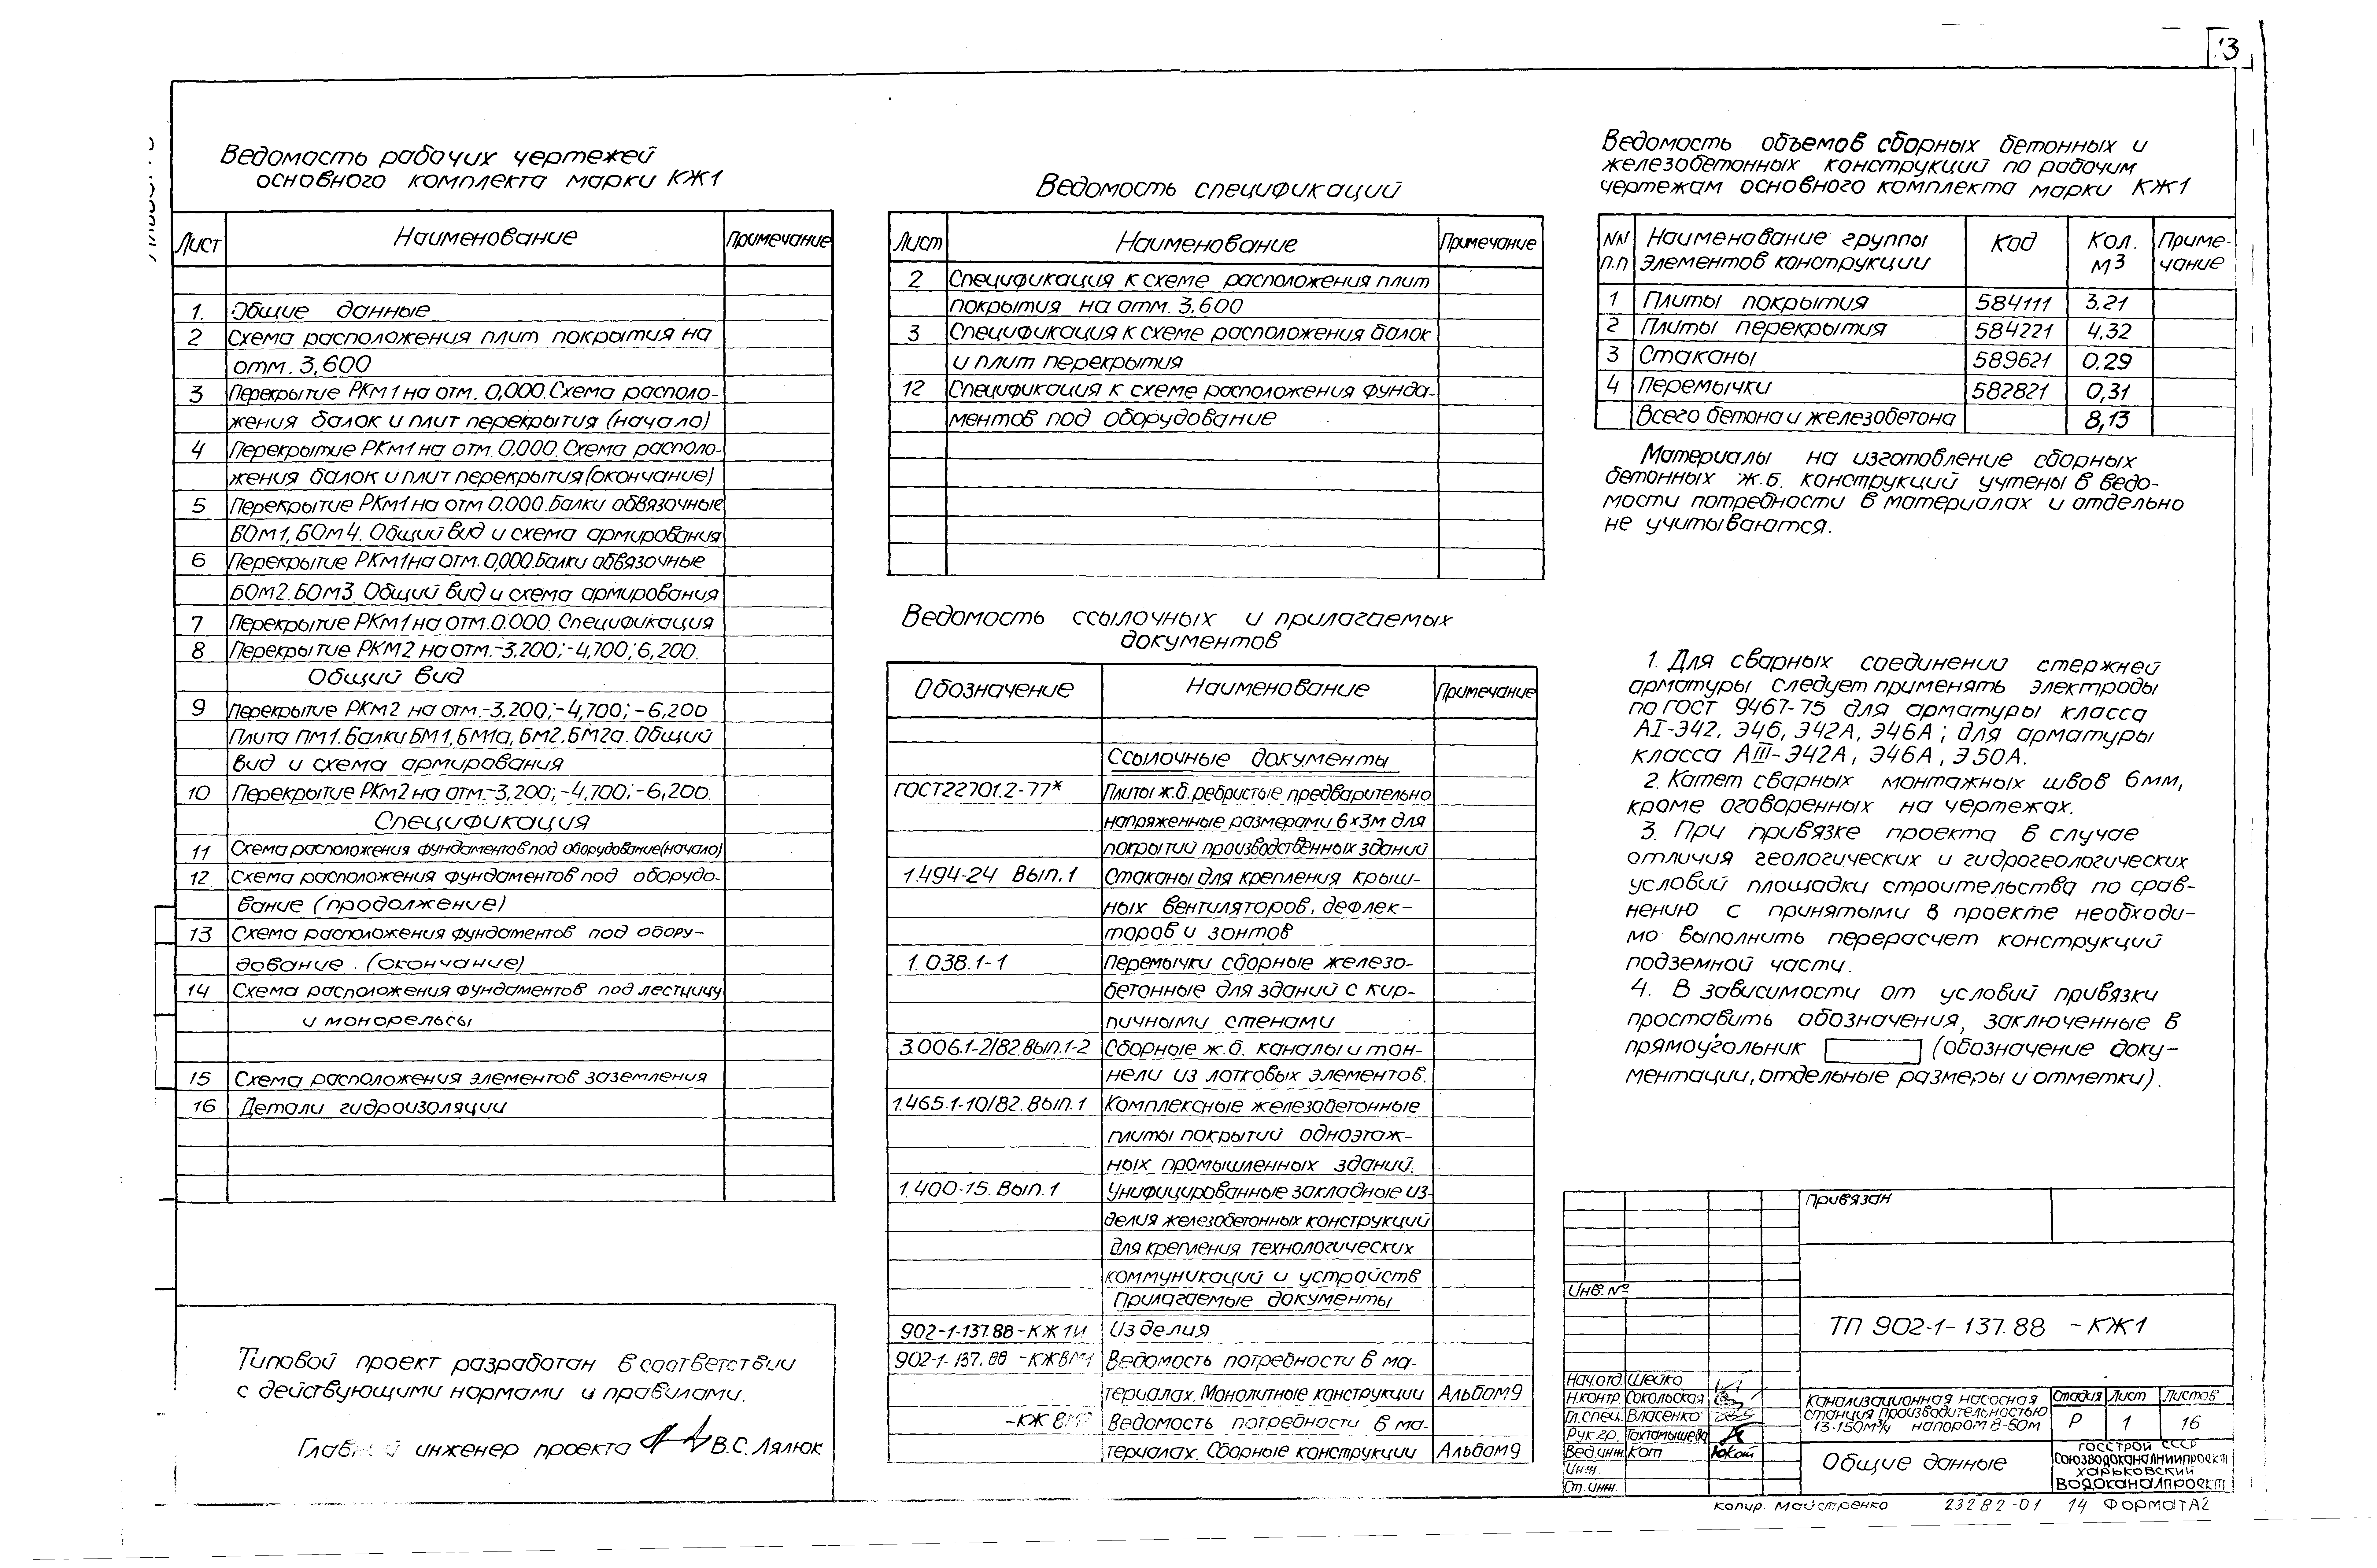 13
Ведомость рабочих чертежей
основного комплекта марки КЖ1
Лист Наименование Примечание
1. Общие данные
2 Схема расположения плит покрытия на
отм. 3,600
3 Перекрытие РКм1 на отм. 0,000. Схема располо-
жения балок и плит перекрытия (начало)
4 Перекрытие РКм1 на отм. 0.000. Схема располо-
жения балок и плит перекрытия (окончание)
5 Перекрытие РКм1 на отм 0.000. Балки обвязочные
БОм1, БОм4. Общий вид и схема армирования
6 Перекрытие РКм1 на отм. 0,000. Балки обвязочные
БОм2. БОм3. Общий вид и схема армирования
7 Перекрытие РКм1 на отм. 0.000. Спецификация
8 Перекрытие РКМ2 на отм.-3.200; -4,700; 6,200.
Общий вид
9 Перекрытие РКм2 на отм.-3.200; -4,700; -6,200
Плита пм1. Балки БМ1, БМ1а, Бм2, БМ2а. Общий
вид и схема армирования
10 Перекрытие РКм2 на отм.-3,200; -4,700; -6,200.
Спецификация
11 Схема расположения фундаментов под оборудование (начало)
12. Схема расположения фундаментов под оборудо-
вание (продолжение)
13 Схема расположения фундаментов под обору-
дование. (окончание)
14 Схема расположения фундаментов под лестницу
и монорельсы
15 Схема расположения элементов заземления
16 Детали гидроизоляции
Типовой проект разработан в соответствии
с действующими нормами и правилами.
Главный инженер проекта В.С. Лялюк
Ведомость спецификаций
Лист Наименование Примечание
2 Спецификация к схеме расположения плит
покрытия на отм. 3,600
3 Спецификация к схеме расположения балок
и плит перекрытия
12 Спецификация к схеме расположения фунда-
ментов под оборудование
Ведомость ссылочных и прилагаемых
документов
Обозначение Наименование Примечание
Ссылочные документы
ГОСТ22701.2-77* Плиты ж.б. ребристые предварительно
напряженные размерами 6×3м для
покрытий производственных зданий
1.494-24 Вып.1 Стаканы для крепления крыш-
ных вентиляторов, дефлек-
торов и зонтов
1.038.1-1 Перемычки сборные железо-
бетонные для зданий с кир-
пичными стенами
3.006.1-2/82.Вып.1-2 Сборные ж.б. каналы и тон-
нели из лотковых элементов.
1.465.1-10/82. Вып.1 Комплексные железобетонные
плиты покрытий одноэтаж-
ных промышленных зданий.
1.400-15. Вып.1 Унифицированные закладные из-
делия железобетонных конструкций
для крепления технологических
коммуникаций и устройств
Прилагаемые документы
902-1-137.88-КЖ1И Изделия
902-1-137.88 -КЖВМ1 Ведомость потребности в ма-
териалах. Монолитные конструкции Альбом 9
-КЖ Ведомость потребности в ма-
териалах. Сборные конструкции Альбом 9
Ведомость объемов сборных бетонных и
железобетонных конструкций по рабочим
чертежам основного комплекта марки КЖ1
NN п.п Наименование группы элементов конструкции Код Кол. м3 Приме-чание
1 Плиты покрытия 584111 3.21
2 Плиты перекрытия 584221 4,32
3 Стаканы 589621 0.29
4 Перемычки 582821 0,31
Всего бетона и железобетона 8,13
Материалы на изготовление сборных
бетонных ж.б. конструкций учтены в ведо-
мости потребности в материалах и отдельно
не учитываются.
1. Для сварных соединений стержней
арматуры следует применять электроды
по ГОСТ 9467-75 для арматуры класса
АI-Э42, Э46, Э42А, Э46А; для арматуры
класса АIII-Э42А, Э46А, Э50А.
2. Катет сварных монтажных швов 6мм,
кроме оговоренных на чертежах.
3. При привязке проекта в случае
отличия геологических и гидрогеологических
условий площадки строительства по срав-
нению с принятыми в проекте необходи-
мо выполнить перерасчет конструкций
подземной части.
4. В зависимости от условий привязки
проставить обозначения, заключенные в
прямоугольник (обозначение доку-
ментации, отдельные размеры и отметки).
Привязан
Инв. №
ТП 902-1-137.88 -КЖ1
Нач.отд. Шейко
Н.контр. Сокольская
Гл.спец. Власенко
Рук.гр. Тахтамышева
Вед.инж. Кот
Инж.
Ст.инж.
Канализационная насосная
станция производительностью
13-150м³/ч напором 8-50м
Стадия Лист Листов
Р 1 16
Общие данные
Госстрой СССР
Союзводоканалниипроект
Харьковский
Водоканалпроект
копир. Майстренко 23282-01 14 Формат А2